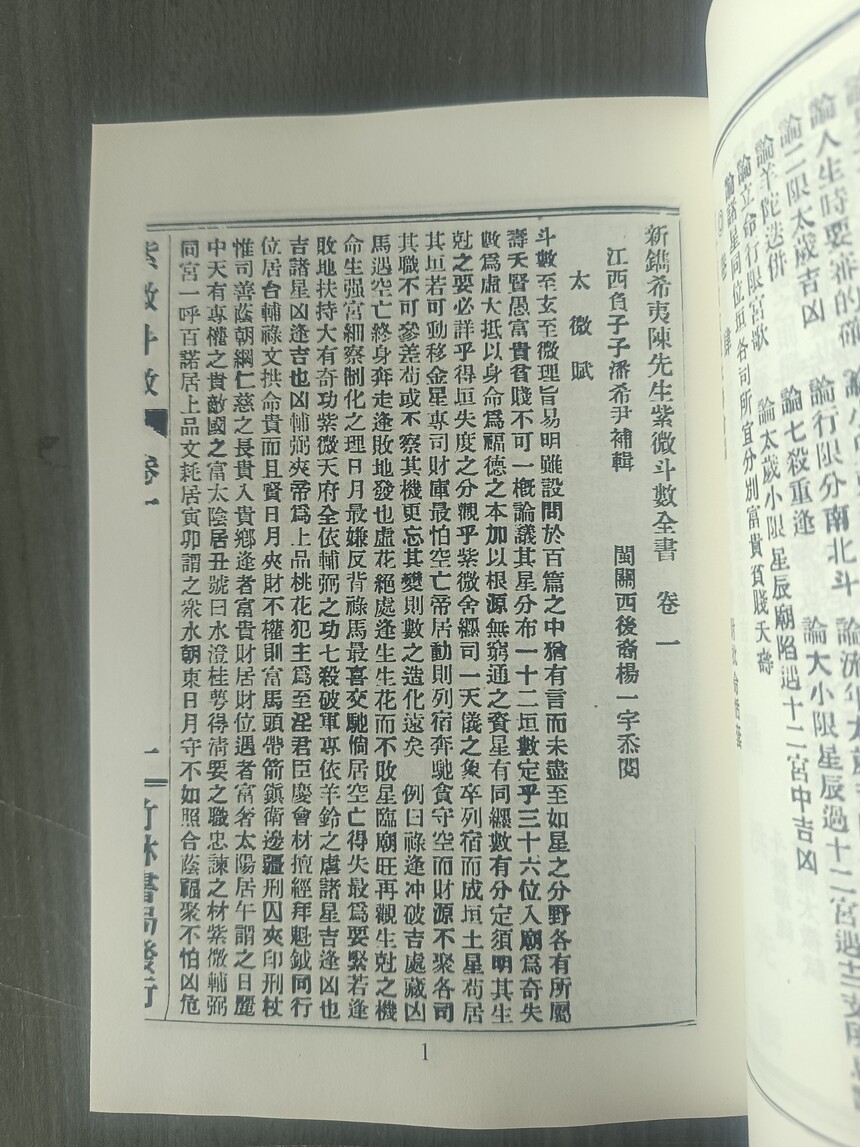 新鐫希夷陳先生紫微斗數全書 卷一
江西負子子潘希尹補輯 閩關西後裔楊一宇叅閱
太微賦
斗數至玄至微理旨易明雖設問於百篇之中猶有言而未盡至如星之分野各有所屬
壽夭賢愚富貴貧賤不可一概論議其星分布一十二垣數定乎三十六位入廟爲奇失
數爲虛大抵以身命爲福德之本加以根源無窮通之資星有同纏數有分定須明其生
尅之要必詳乎得垣失度之分觀乎紫微舍纏司一天儀之象卒列宿而成垣土星苟居
其垣若可動移金星專司財庫最怕空亡帝居動則列宿奔馳貪守空而財源不聚各司
其職不可參差苟或不察其機更忘其變則數之造化遠矣 例曰祿逢冲破吉處藏凶
馬遇空亡終身奔走逢敗地發也虛花絕處逢生生花而不敗星臨廟旺再觀生尅之機
命生强宮細察制化之理日月最嫌反背祿馬最喜交馳倘居空亡得失最爲要緊若逢
敗地扶持大有奇功紫微天府全依輔弼之功七殺破軍專依羊鈴之虐諸星吉逢凶也
吉諸星凶逢吉也凶輔弼夾帝爲上品桃花犯主爲至淫君臣慶會材擅經拜魁鉞同行
位居台輔祿文拱命貴而且賢日月夾財不權則富馬頭帶箭鎮衛邊疆刑囚夾印刑杖
惟司善蔭朝綱仁慈之長貴入貴鄉逢者富貴財居財位遇者富奢太陽居午謂之日麗
中天有專權之貴敵國之富太陰居丑號曰水澄桂萼得清要之職忠諫之材紫微輔弼
同宮一呼百諾居上品文耗居寅卯謂之衆水朝東日月守不如照合蔭福聚不怕凶危
紫微斗數 卷一 一 竹林書局發行
1
論人生時要審的確
論二限太歲吉凶 論行限分南北斗
論羊陀迭併 論七殺重逢 論大小限星辰過十二宮遇
論立命行限宮歌 論太歲小限星辰廟陷遇十二宮中吉凶
論諸星同位垣各司所宜分別富貴貧賤夭壽